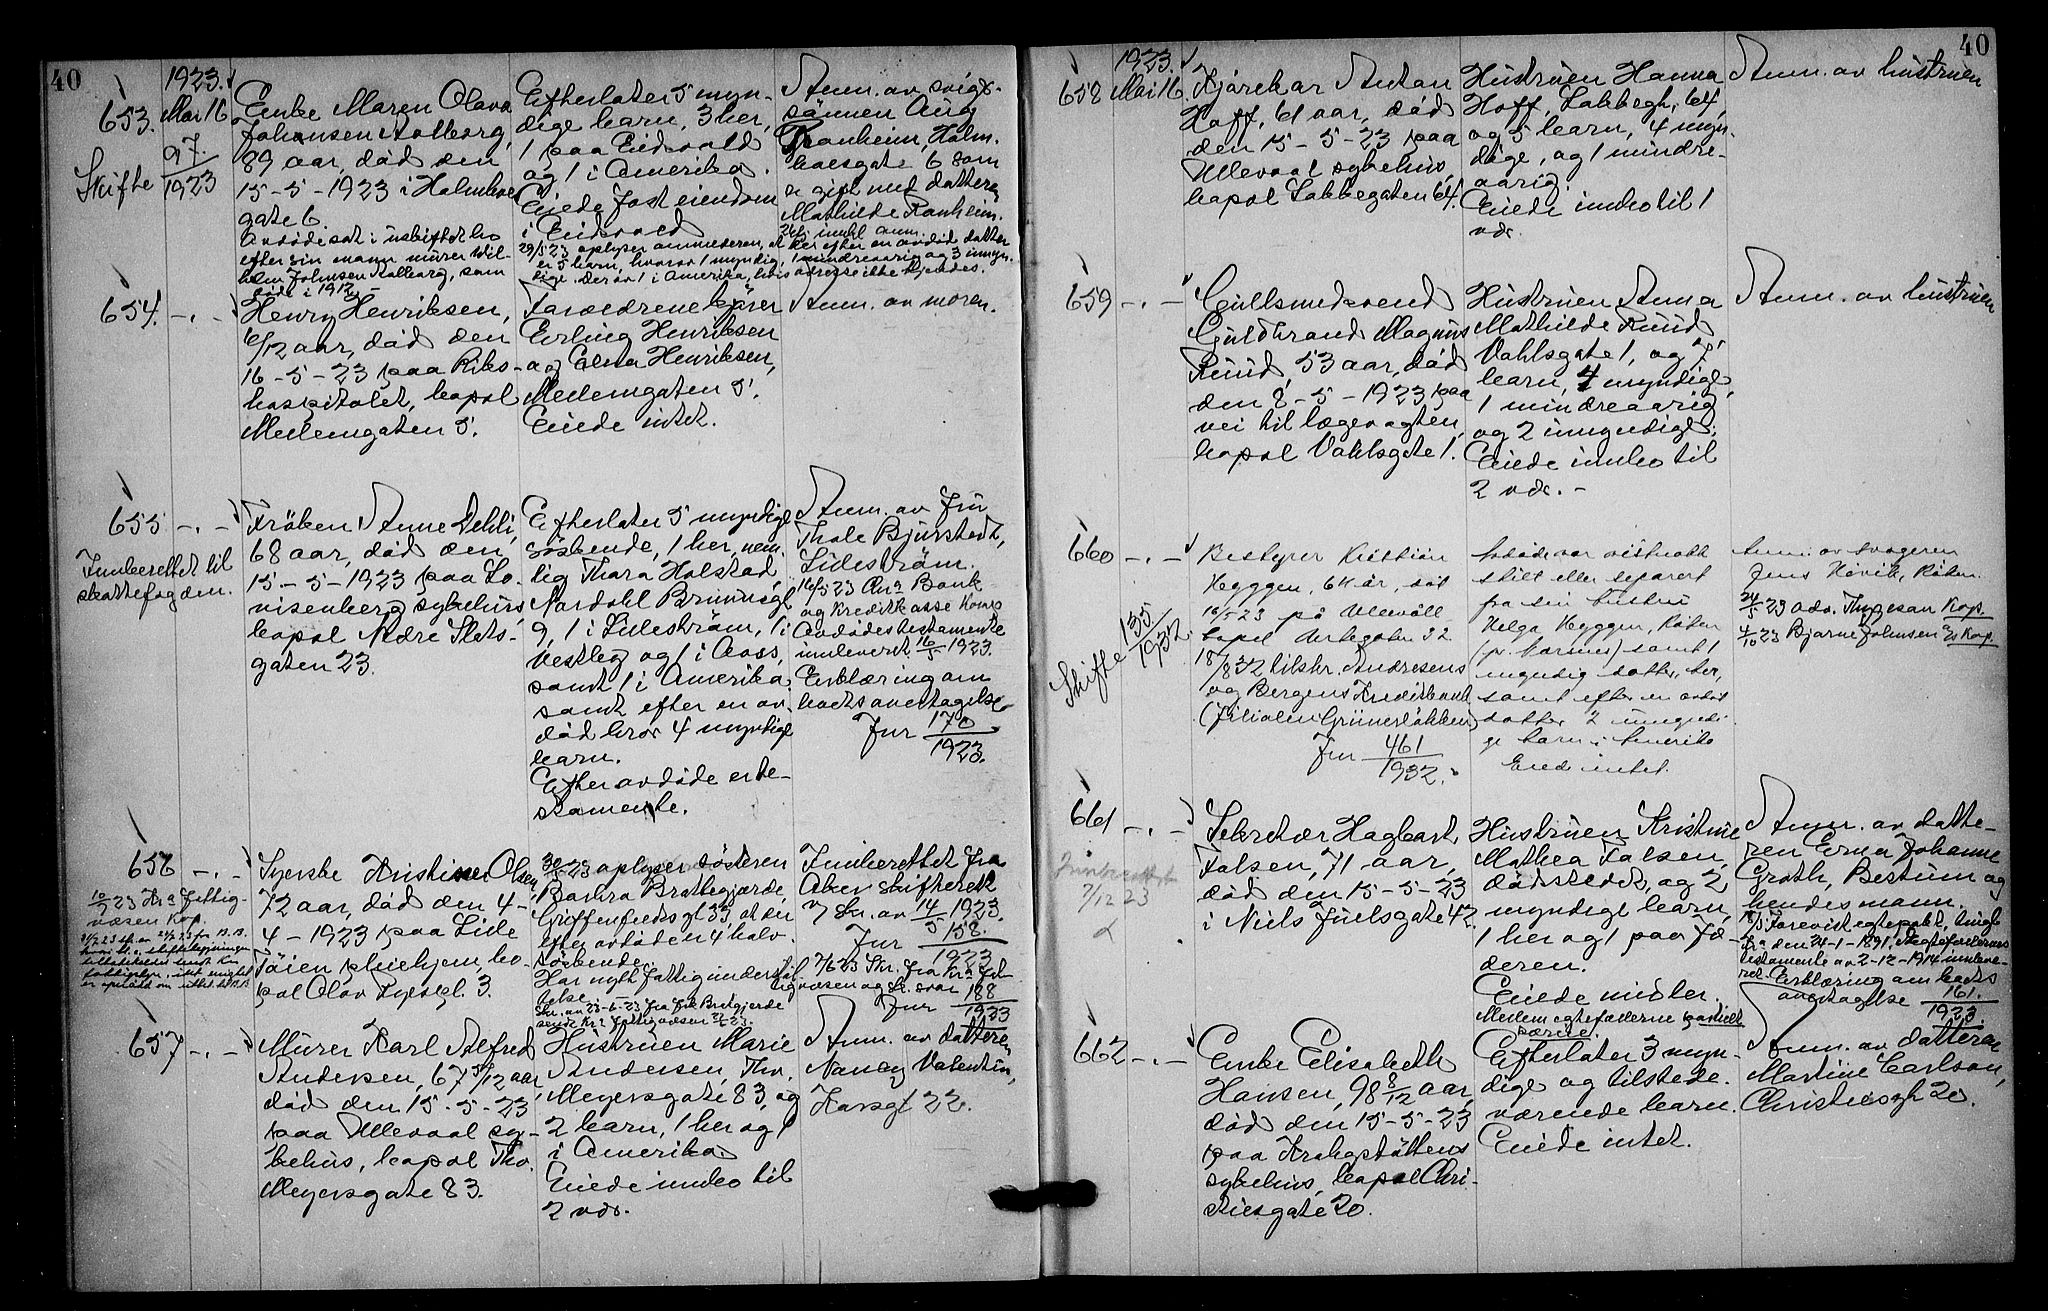 40
1923.
653.
Mai 16
97.
1923
Skifte
Enke Maren Olava
Johansen Aalborg,
89 aar, död den
15-5-1923 i Holmboe
gate 6
Avdöde sat i uskiftet bo
efter sin mann murer Wil-
helm Johnsen Aalborg, som
döde i 1912
Efterlater 5 myn-
dige barn, 3 her,
1 paa Eidsvold
og 1 i Amerika.
Eiede fast eiendom
i Eidsvold
29/5 23 oplyser anmelderen, at her efter en avdöd datter
er 5 barn, hvorav 1 myndig, 1 mindreaarig og 3 umyn-
dige. Der av 1 i Amerika, hvis adresse ikke kjendes.
Anm. av svige-
sønnen Aug
Ranheim, Holm-
boesgate 6 som
er gift med datteren
Mathilde Ranheim.
654.
Henry Henriksen,
6/12 aar, død den
16-5-23 paa Riks-
hospitalet, bopæl
Mellemgaten 5.
Forældrene kjörer
Erling Henriksen
og Elna Henriksen,
Mellemgaten 5.
Eiede intet.
Anm. av moren.
655
Innberettet til
skattefogden.
Fröken Anne Dehli,
68 aar, död den
15-5-1923 paa Lo-
visenberg sykehus,
bopæl Nedre Slots-
gaten 23.
Efterlater 5 myndige
søskende, 1 her, nem-
lig Thora Holstad,
Nordahl Brunsgt
9, 1 i Lilleström, 1 i
Vestby og 1 i Aas,
samt 1 i Amerika,
samt efter en av-
død bror 4 myndige
barn.
Efter avdöde er te-
stamente.
Anm. av Fru
Thale Bjürstedt,
Lilleström.
16/5 23 Chr. Bank
og Kreditkasse
Avdødes testamente
innleveret 16/5 1923.
Erklæring om
boets overtagelse
Jnr 170
1923.
656
10/7 23 Kr.a Fattig-
væsen kop.
Syerske Kristine Olsen
72 aar, död den 4-
4-1923 paa Lille
Tøien pleiehjem, bo-
pæl Olav Ryespl. 3.
30/5 23 oplyser søsteren
Barbra Brattegjerde,
Griffenfeldts gt 33 at der
efter avdøde er 4 halv-
søskende.
Har nytt fattigunderstöt-
telse
Innberettet fra
Aker skifterett
v/ Skr. av 14/5 1923.
Jnr 158.
1923
7/6 23 Skr. fra Kr.a Fat-
tigvæsen og Skr. svar
Jnr 188
1923
657
Murer Karl Alfred
Andersen, 67 5/12 aar,
död den 15-5-23
paa Ullevaal sy-
kehus, bopæl Thv.
Meyersgate 83.
Hustruen Marie
Andersen, Thv.
Meyersgate 83, og
2 barn, 1 her og 1
i Amerika
Eiede innbo til
2 vdr.
Anm. av datteren
Nancy Valentin,
Korsgt 22.
40
1923.
658
Mai 16.
Kjörekar Anton
Hoff, 61 aar, död
den 15-5-23 paa
Ullevaal sykehus,
bopæl Lakkegaten 64.
Hustruen Hanna
Hoff, Lakkegt. 64,
og 5 barn, 4 myn-
dige, og 1 mindre-
aarig.
Eiede innbo til 1
vdr.
Anm. av hustruen
659
Gullsmedsvend
Guldbrand Magnus
Ruud, 53 aar, död
den 8-5-1923 paa
vei til lægevagten,
bopæl Vahlsgate 1.
Hustruen Anna
Mathilde Ruud,
Vahlsgate 1, og 7
barn, 4 myndige,
1 mindreaarig
og 2 umyndige.
Eiede innbo til
2 vdr.
Anm. av hustruen
660
Skifte 135/1932
Bestyrer Kristian
Heggen, 64 år, död
16/5 23 på Ullevåll
bopel Vertegaten 32
18/8 32 tilskr. Andresens
og Bergens Kreditbank
(filialen Grünerløkken)
Jnr 461
1932.
Avdøde var visstnokk
skilt eller separert
fra sin hustru
Helga Heggen, Röken
samt 1
myndig datter, her,
samt efter en avdød
datter 2 umyndi-
ge barn i Amerika
Eied intet.
Anm. av svogeren
Jens Hövik, Röken.
24/5 23 adv. Thygesen Kop.
4/10 23 Bjarne Johnsen Kop.
661
Innberettet
7/12 23
Sekretær Hagbart
Falsen, 71 aar,
död den 15-5-23
i Niels Juelsgate 42.
Hustruen Kristine
Mathea Falsen,
dödsstedet, og 2
myndige barn,
1 her og 1 paa Jö-
deren.
Eiede midler.
Mellem egtefællerne partielt
særeie
Anm. av datte-
ren Erna Johanne
Groth, Bestum og
hendes mann.
Forevist egtepakt, tingl.
den 24-1-1891, Egtefællernes
testamente av 2-12-1914 innleve-
ret. Erklæring om boets
overtagelse 161.
1923
662
Enke Elisabeth
Hansen, 98 8/12 aar,
död den 15-5-23
paa Krohgstöttens
sykehus, bopæl Chri-
stiesgate 20.
Efterlater 3 myn-
dige og tilstede-
værende barn.
Eiede intet.
Anm. av datteren
Martine Carlson,
Christiesgt 20.